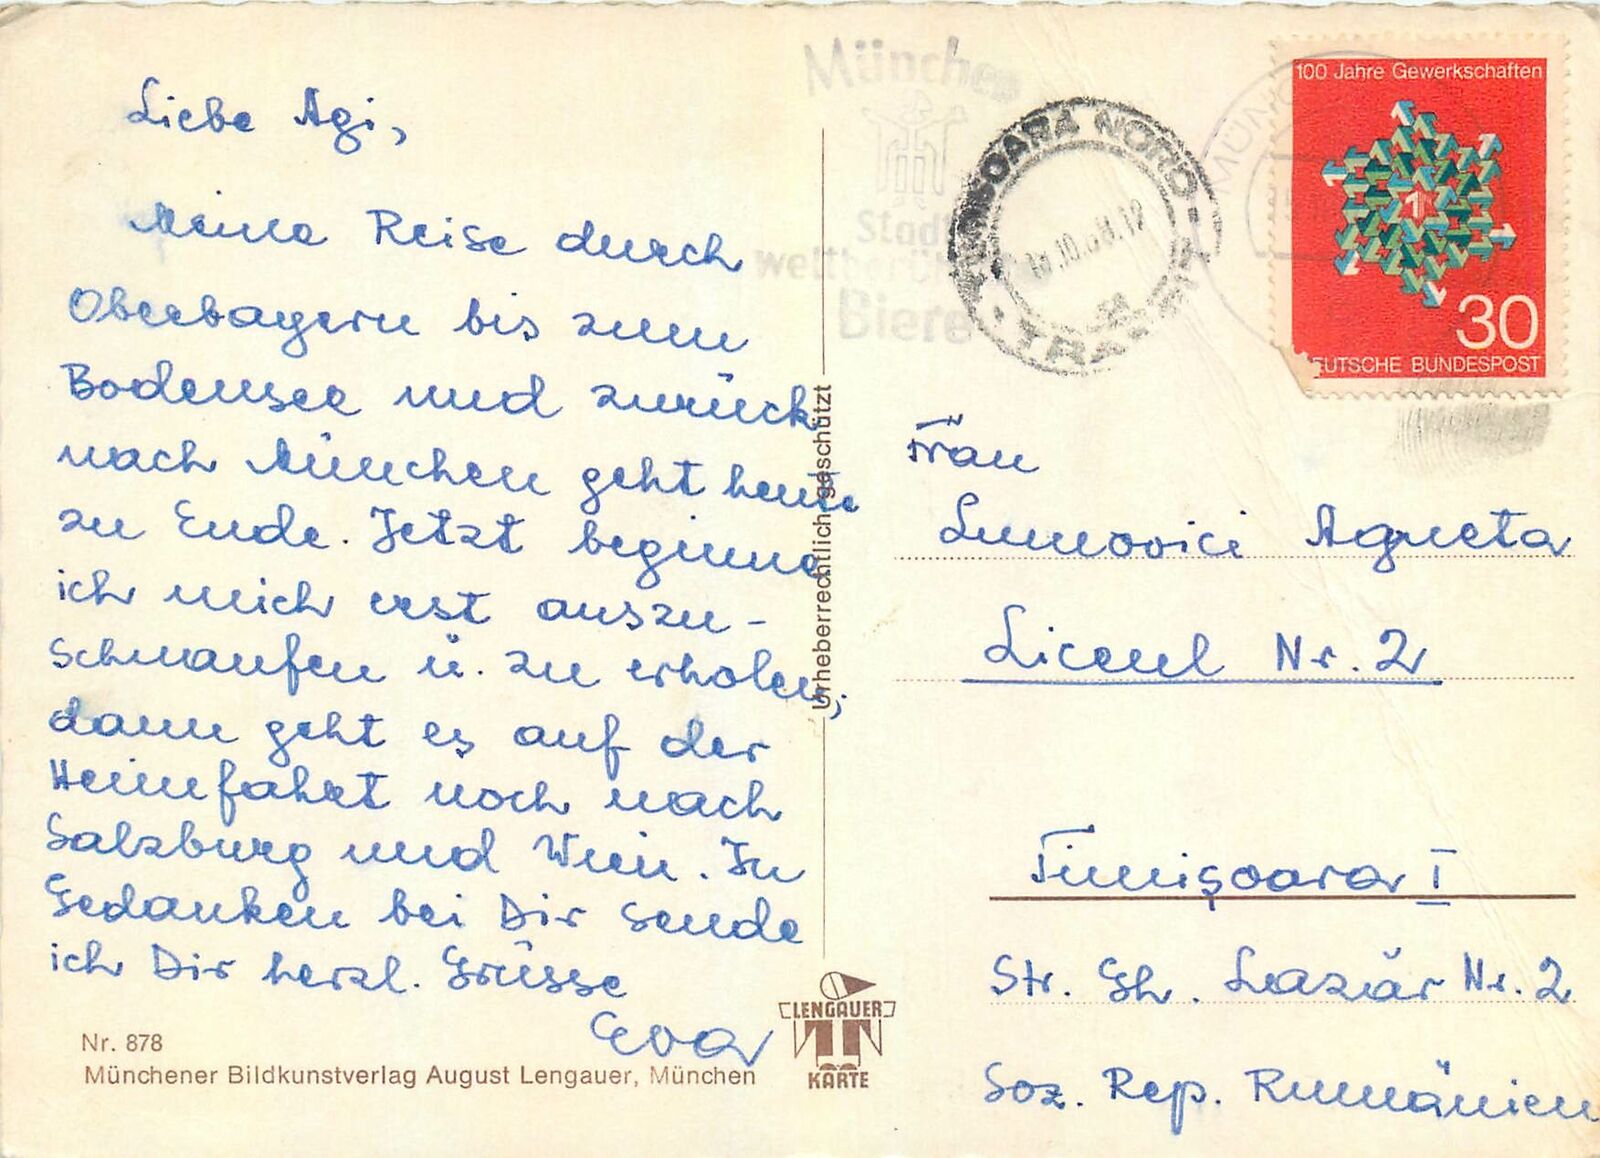 Liebe Agi,
Meine Reise durch
Oberbayern bis zum
Bodensee und zurück
nach München geht heute
zu Ende. Jetzt beginne
ich mich erst auszu-
schnaufen u. zu erholen;
dann geht es auf der
Heimfahrt noch nach
Salzburg und Wien. In
Gedanken bei Dir sende
ich Dir herzl. Grüsse
Eva
Nr. 878
Münchener Bildkunstverlag August Lengauer, München
Urheberrechtlich geschützt
LENGAUER
KARTE
München
Stadt
Biere
TIMIȘOARA NORD
10.68.12
100 Jahre Gewerkschaften
30
DEUTSCHE BUNDESPOST
Frau
Agneta
Liceul Nr. 2
Timișoara I
Str. Gh. Lazăr Nr. 2
Soz. Rep. Rumänien